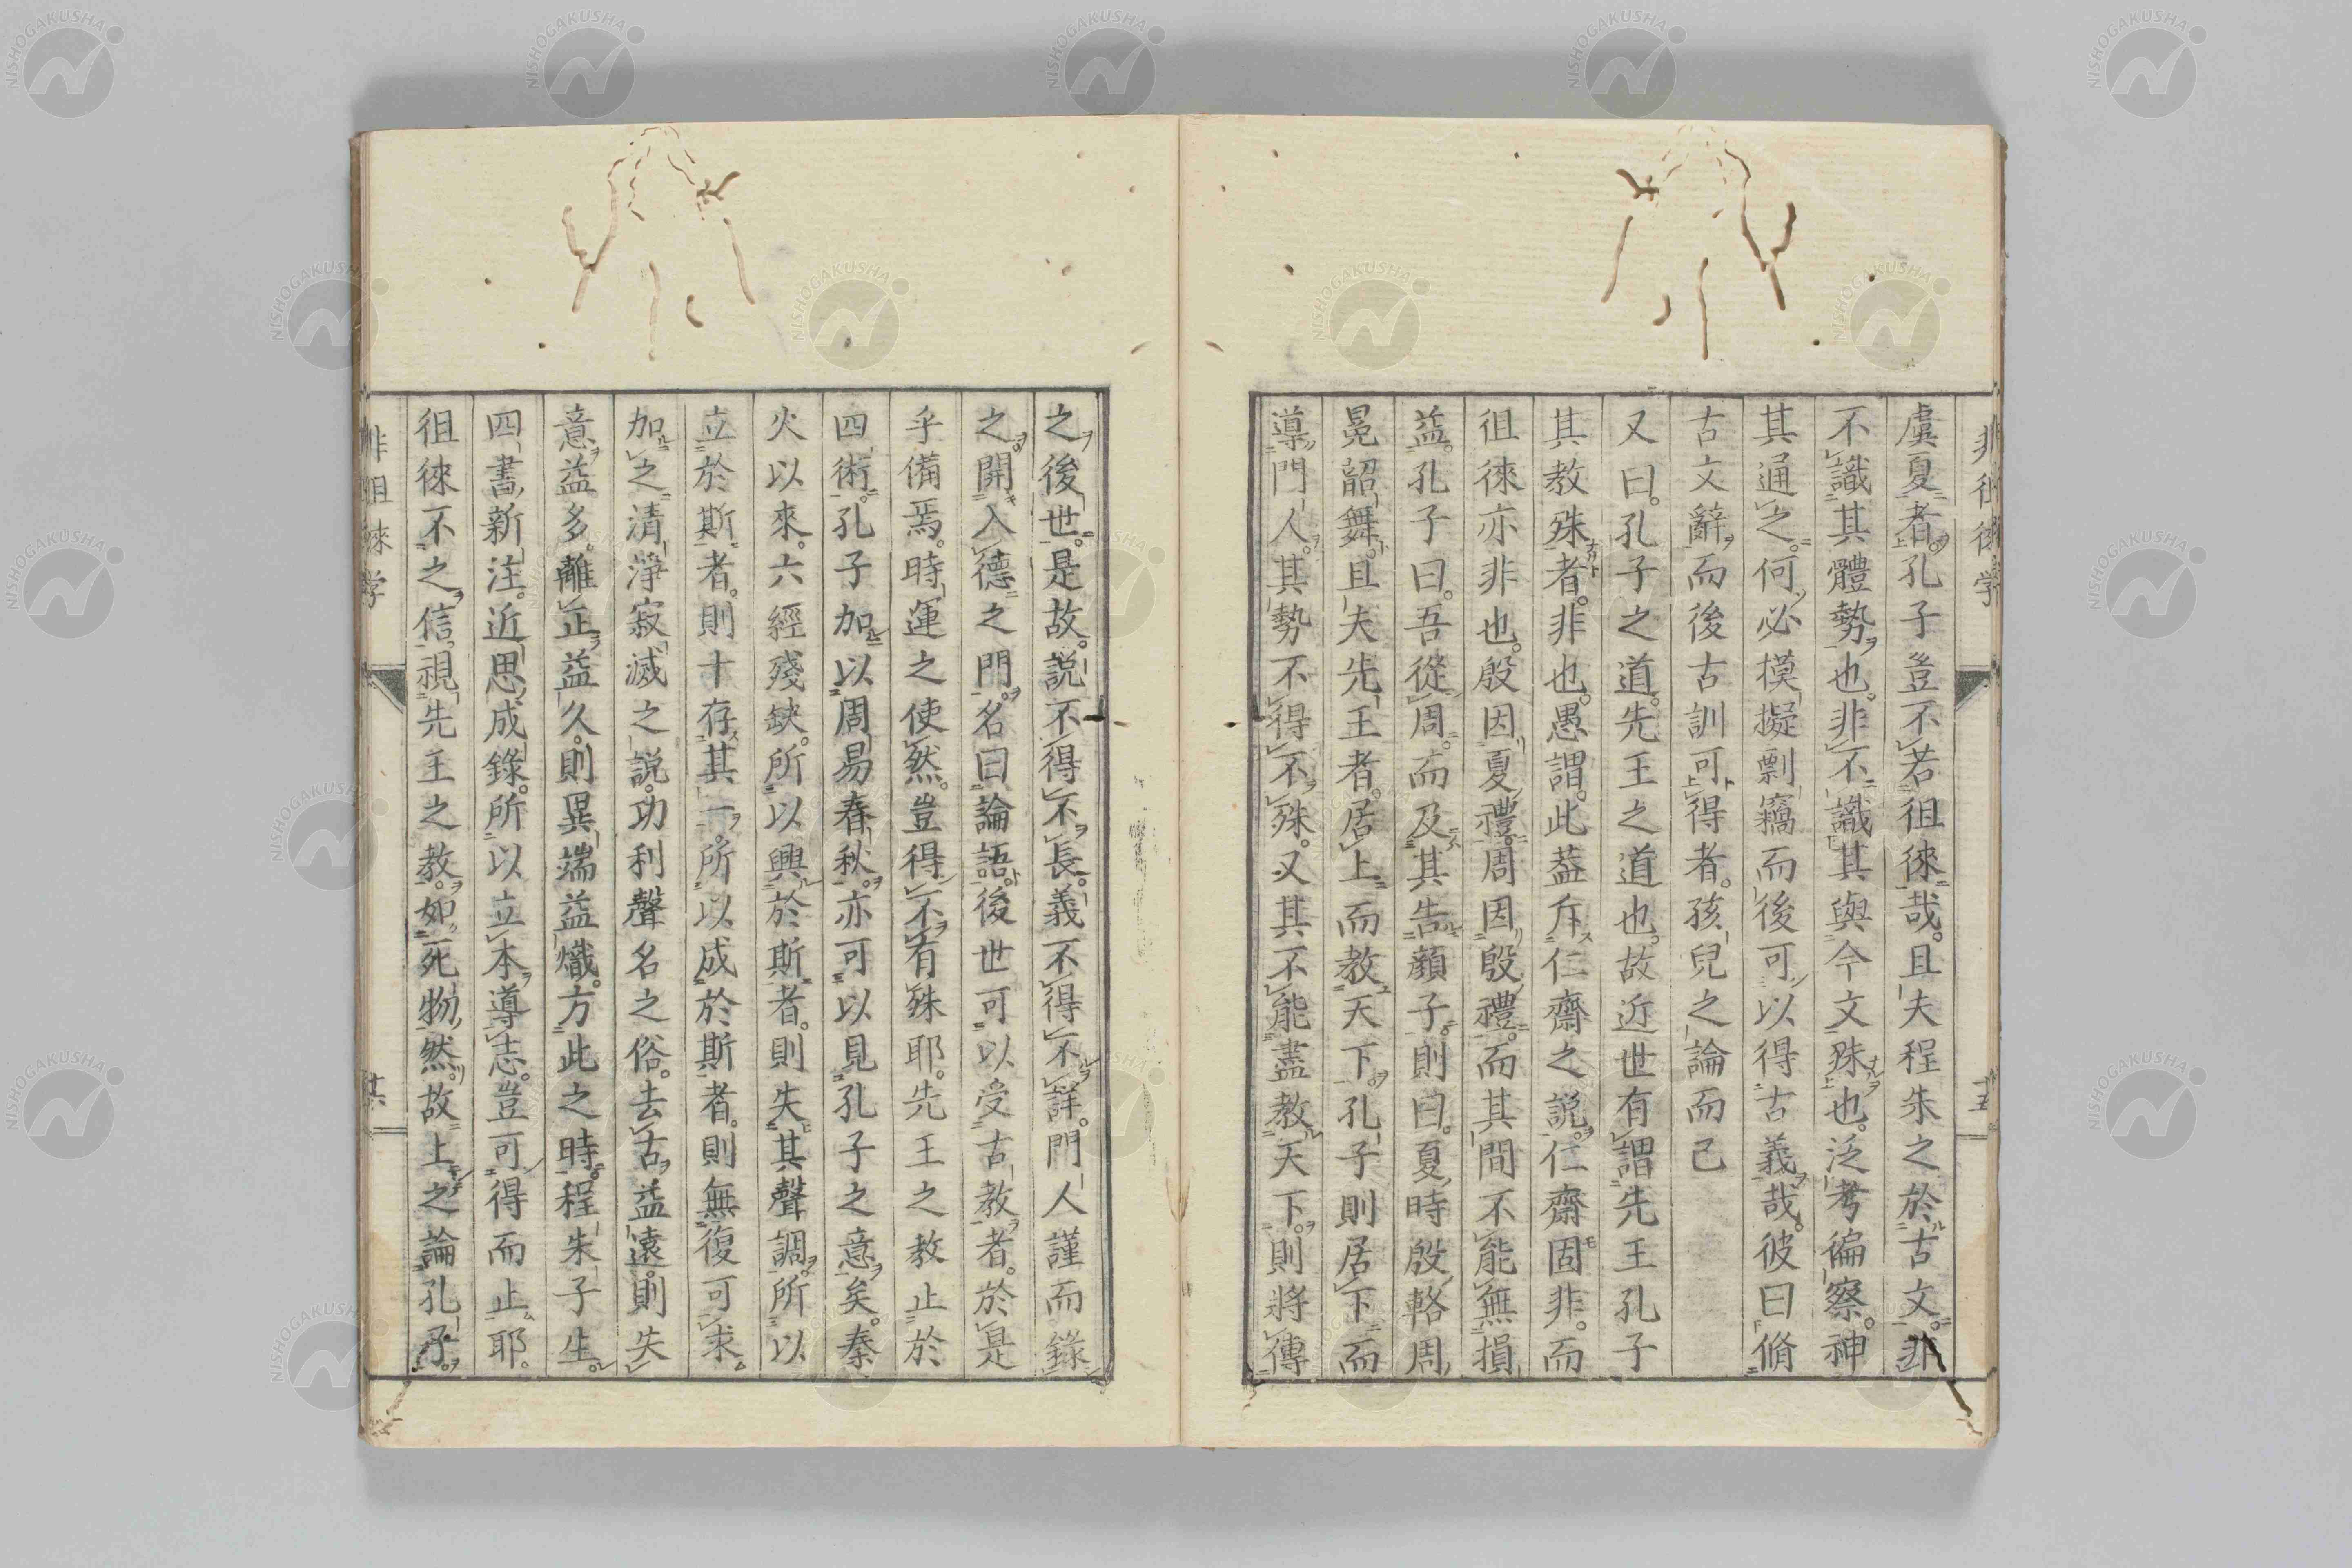 虞夏者孔子豈不若徂徠哉。且夫程朱之於古文。非
不識其體勢也。非不識其與今文殊也。泛考徧察。神
其通之。何必摸擬剽竊而後可以得古義哉。彼曰脩
古文辭而後古訓可得者。孩兒之論而已
又曰。孔子之道。先王之道也。故近世有謂先王孔子
其教殊者。非也。愚謂。此葢斥仁齋之説。仁齋固非。而
徂徠亦非也。殷因夏禮。周因殷禮。而其間不能無損
益。孔子曰。吾從周。而及其告顔子。則曰。夏時殷輅周
冕韶舞。且夫先王者。居上而教天下。孔子則居下而
導門人。其勢不得不殊。又其不能盡教天下。則將傳
之後世。是故。説不得不長。義不得不詳。門人謹而錄
之。開入德之門。名曰論語。後世可以受古教者。於是
乎備焉。時運之使然。豈得不有殊耶。先王之教止於
四術。孔子加以周易春秋。亦可以見孔子之意矣。秦
火以來。六經殘缺。所以興於斯者。則失其聲調。所以
立於斯者。則十存其一。所以成於斯者。則無復可求
加之清淨寂滅之説。功利聲名之俗。去古益遠。則失
意益多。離正益久。則異端益熾。方此之時。程朱子生。
四書新注。近思成錄。所以立本導志。豈可得而止耶。
徂徠不之信。視先王之教。如死物然。故上之論孔子。
非徂徠学
十五
非徂徠学
其
NISHOGAKUSHA